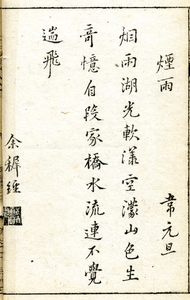 煙雨
韋元旦
烟雨湖光軟漾空濛山色生
奇憶自段家橋水流連不覺
遄飛
余穉